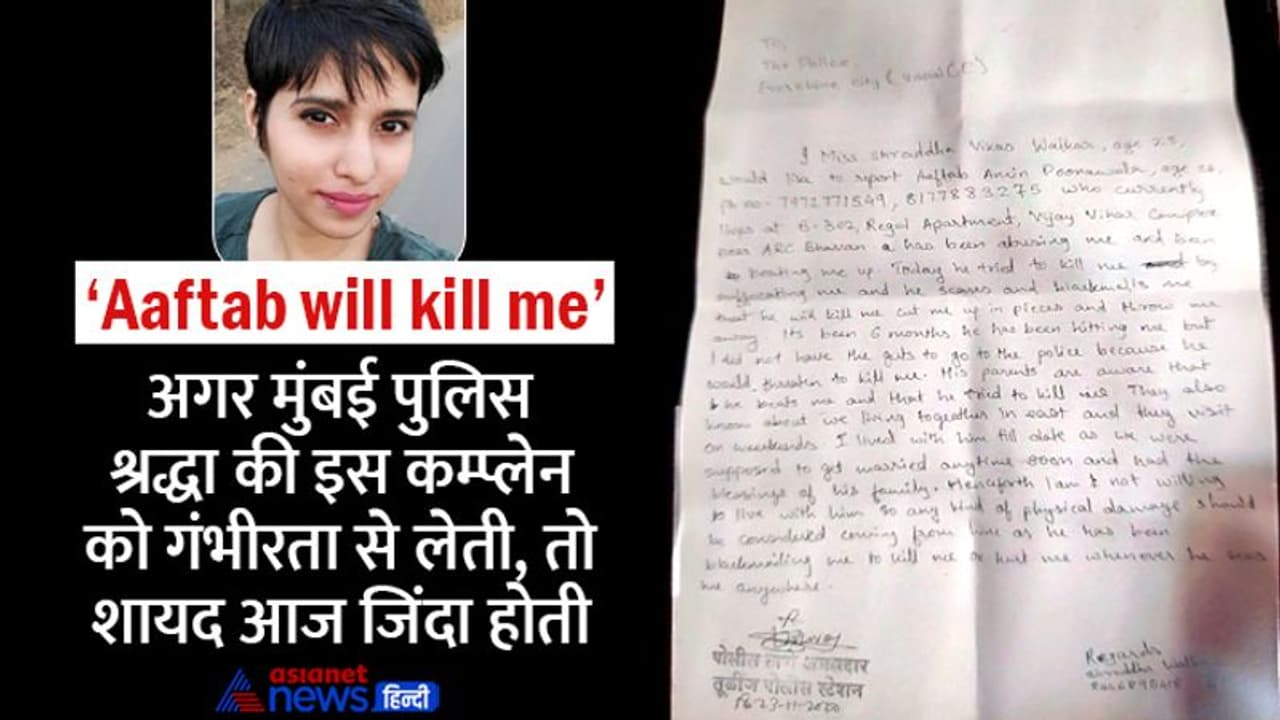 ‘Aaftab will kill me’
अगर मुंबई पुलिस
श्रद्धा की इस कम्प्लेन
को गंभीरता से लेती, तो
शायद आज जिंदा होती
asianet
news हिन्दी
To,
The Police,
I Miss Shraddha Vikas Walkar, age 25,
would like to report Aaftab Amin Poonawala, age 26,
ph no- 7972771549, 8177883275 who currently
lives at B-302, Regal Apartment, Vijay Vihar Complex
near ARC Bhavan a has been abusing me and been
beating me up. Today he tried to kill me by
suffocating me and he scares and blackmails me
that he will kill me cut me up in pieces and throw me
away. Its been 6 months he has been hitting me but
I did not have the guts to go to the police because he
would threaten to kill me. His parents are aware that
he beats me and that he tried to kill me. They also
know about we living together in east and they visit
on weekends. I lived with him till date as we were
supposed to get married anytime soon and had the
blessings of his family. Henceforth I am not willing
to live with him so any kind of physical damage should
be considered coming from him as he has been
blackmailing me to kill me or hurt me whenever he sees
me anywhere.
पोलीस ठाणे अंमलदार
तूळींज पोलीस स्टेशन
23-11-2020
Regards